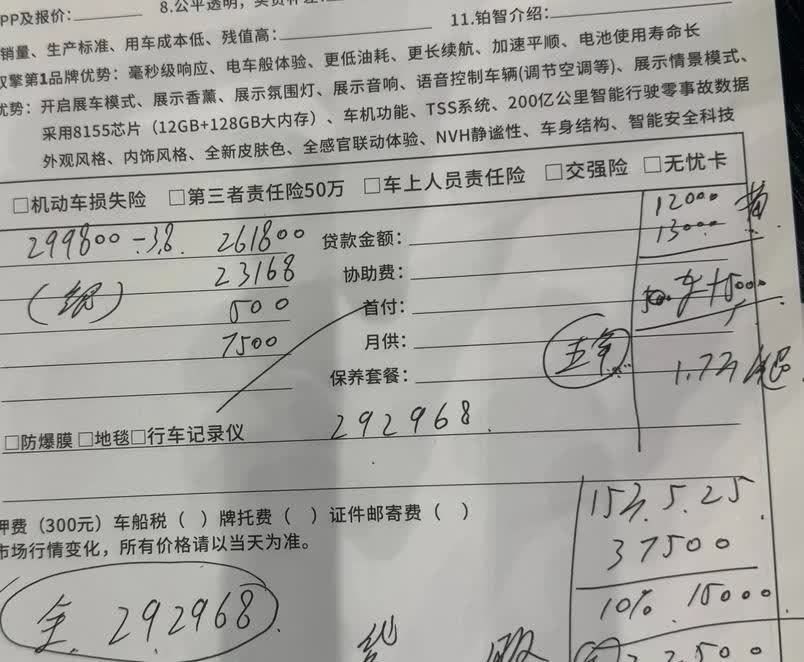 PP及报价：
8.公平透明，
11.铂智介绍：
销量、生产标准、用车成本低、残值高：
双擎第1品牌优势：毫秒级响应、电车般体验、更低油耗、更长续航、加速平顺、电池使用寿命长
优势：开启展车模式、展示香薰、展示氛围灯、展示音响、语音控制车辆(调节空调等)、展示情景模式、
采用8155芯片（12GB+128GB大内存）、车机功能、TSS系统、200亿公里智能行驶零事故数据
外观风格、内饰风格、全新皮肤色、全感官联动体验、NVH静谧性、车身结构、智能安全科技
□机动车损失险 □第三者责任险50万 □车上人员责任险 □交强险 □无忧卡
299800-3.8 261800 贷款金额：
12000
13000
23168 协助费：
500 首付：
7500 月供：
五年
1.7万
保养套餐：
□防爆膜 □地毯□行车记录仪
292968
押费（300元）车船税（ ）牌托费（ ）证件邮寄费（ ）
市场行情变化，所有价格请以当天为准。
15万.5.25
37500
10% 15000
全 292968
22500